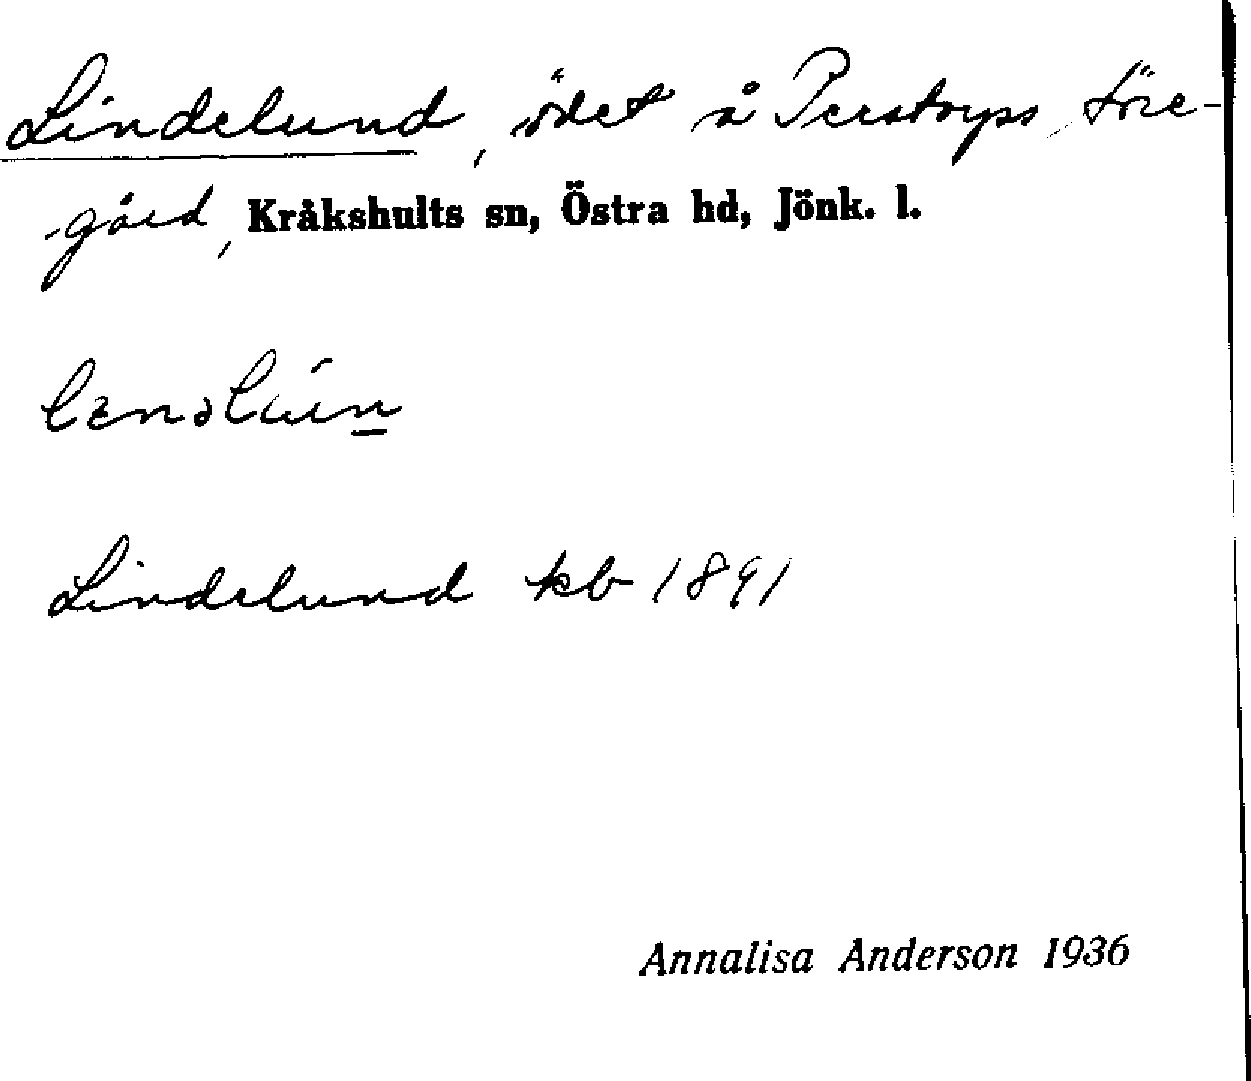 Lindelund, ödet å Perstorps Töre-
-gård, Kråkshults sn, Östra hd, Jönk. l.
Lindelund kb 1891
Annalisa Anderson 1936